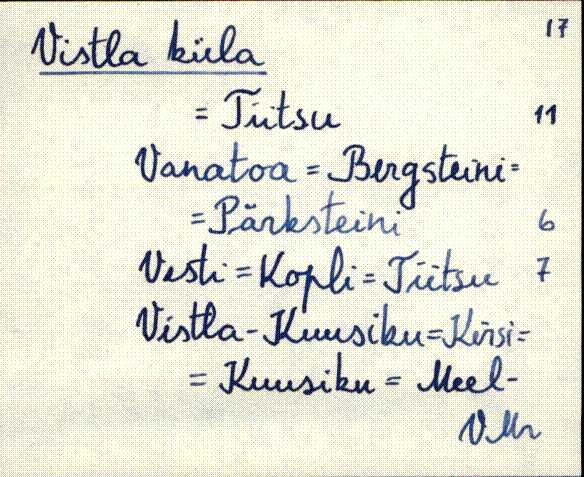 Vistla küla 17
= Tiitsu 11
Vanatoa = Bergsteini =
= Pärksteini 6
Vesti = Kopli = Tiitsu 7
Vistla-Kuusiku = Kirsi =
= Kuusiku = Meel-
VMr